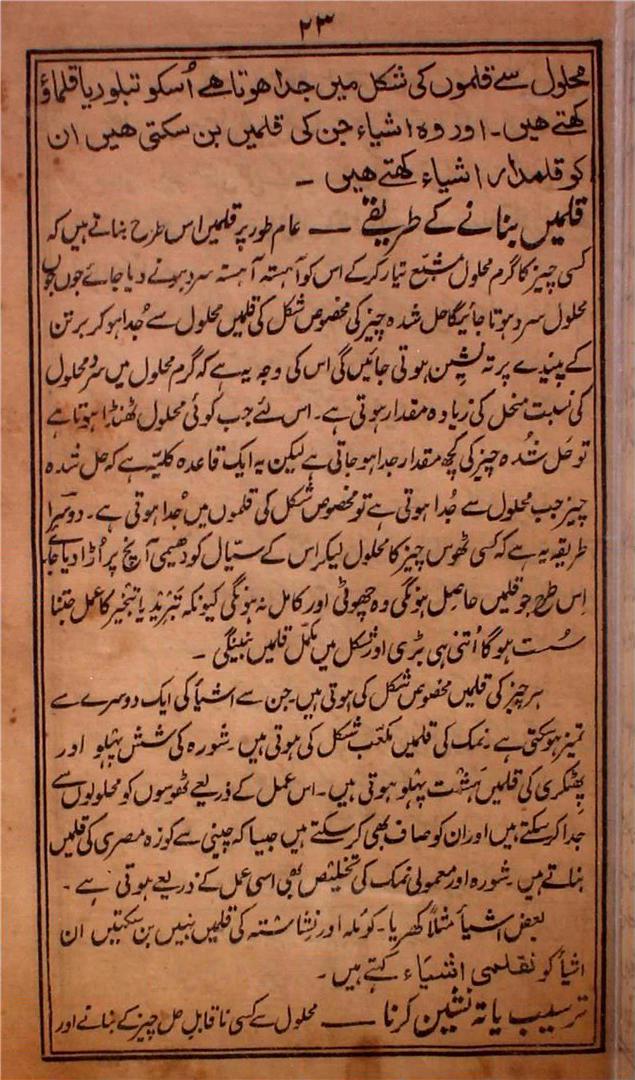 ۲۳
محلول سے قلموں کی شکل میں جدا ھوتا ھے اُسکو تبلور یا قلماؤ
کھتے ھیں۔ اور وہ اشیاء جن کی قلمیں بن سکتی ھیں ان
کو قلمدار اشیاء کھتے ھیں ۔
قلمیں بنانے کے طریقے — عام طور پر قلمیں اس طرح بناتے ہیں کہ
کسی چیز کا گرم محلول مشبّع تیار کرکے اس کو آہستہ آہستہ سرد ہونے دیا جائے جوں جوں
محلول سرد ہوتا جائیگا حل شدہ چیز کی مخصوص شکل کی قلمیں محلول سے جُدا ہو کر برتن
کے پیندے پر تہ نشین ہوتی جائیں گی اس کی وجہ یہ ہے کہ گرم محلول میں سرد محلول
کی نسبت منحل کی زیادہ مقدار ہوتی ہے۔ اس لئے جب کوئی محلول ٹھنڈا ہوتا ہے
تو حَل شُدہ چیز کی کچھ مقدار جدا ہو جاتی ہے لیکن یہ ایک قاعدہ کلیّہ ہے کہ حل شدہ
چیز جب محلول سے جُدا ہوتی ہے تو مخصوص شکل کی قلموں میں جُدا ہوتی ہے۔ دوسرا
طریقہ یہ ہے کہ کسی ٹھوس چیز کا محلول لیکر اس کے سیّال کو دھیمی آنچ پر اُڑا دیا جائے
اِس طرح جو قلمیں حاصل ہونگی وہ چھوٹی اور کامل نہ ہونگی کیونکہ تبرید یا تبخیر کا عمل جتنا
سُست ہوگا اُتنی ہی بڑی اور شکل میں مکمّل قلمیں بنینگی ۔
ہر چیز کی قلمیں مخصوص شکل کی ہوتی ہیں۔ جن سے اشیأ کی ایک دوسرے سے
تمیز ہو سکتی ہے ۔ نمک کی قلمیں مکعّب شکل کی ہوتی ہیں ۔ شورہ کی شش پہلو اور
پھٹکری کی قلمیں ہشت پہلو ہوتی ہیں۔ اس عمل کے ذریعے ٹھوسوں کو محلولوں سے
جدا کر سکتے ہیں اور ان کو صاف بھی کر سکتے ہیں جیسا کہ چینی سے کوزہ مصری کی قلمیں
بناتے ہیں ۔ شورہ اور معمولی نمک کی تخلیص بھی اسی عمل کے ذریعے ہوتی ہے ۔
بعض اشیأ مثلاً کھریا ۔ کوئلہ اور نِشاستہ کی قلمیں نہیں بن سکتیں ان
اشیأ کو نقلمی اشیاء کہتے ہیں ۔
ترسیب یا تہ نشین کرنا — محلول سے کسی ناقابلِ حل چیز کے بنانے اور